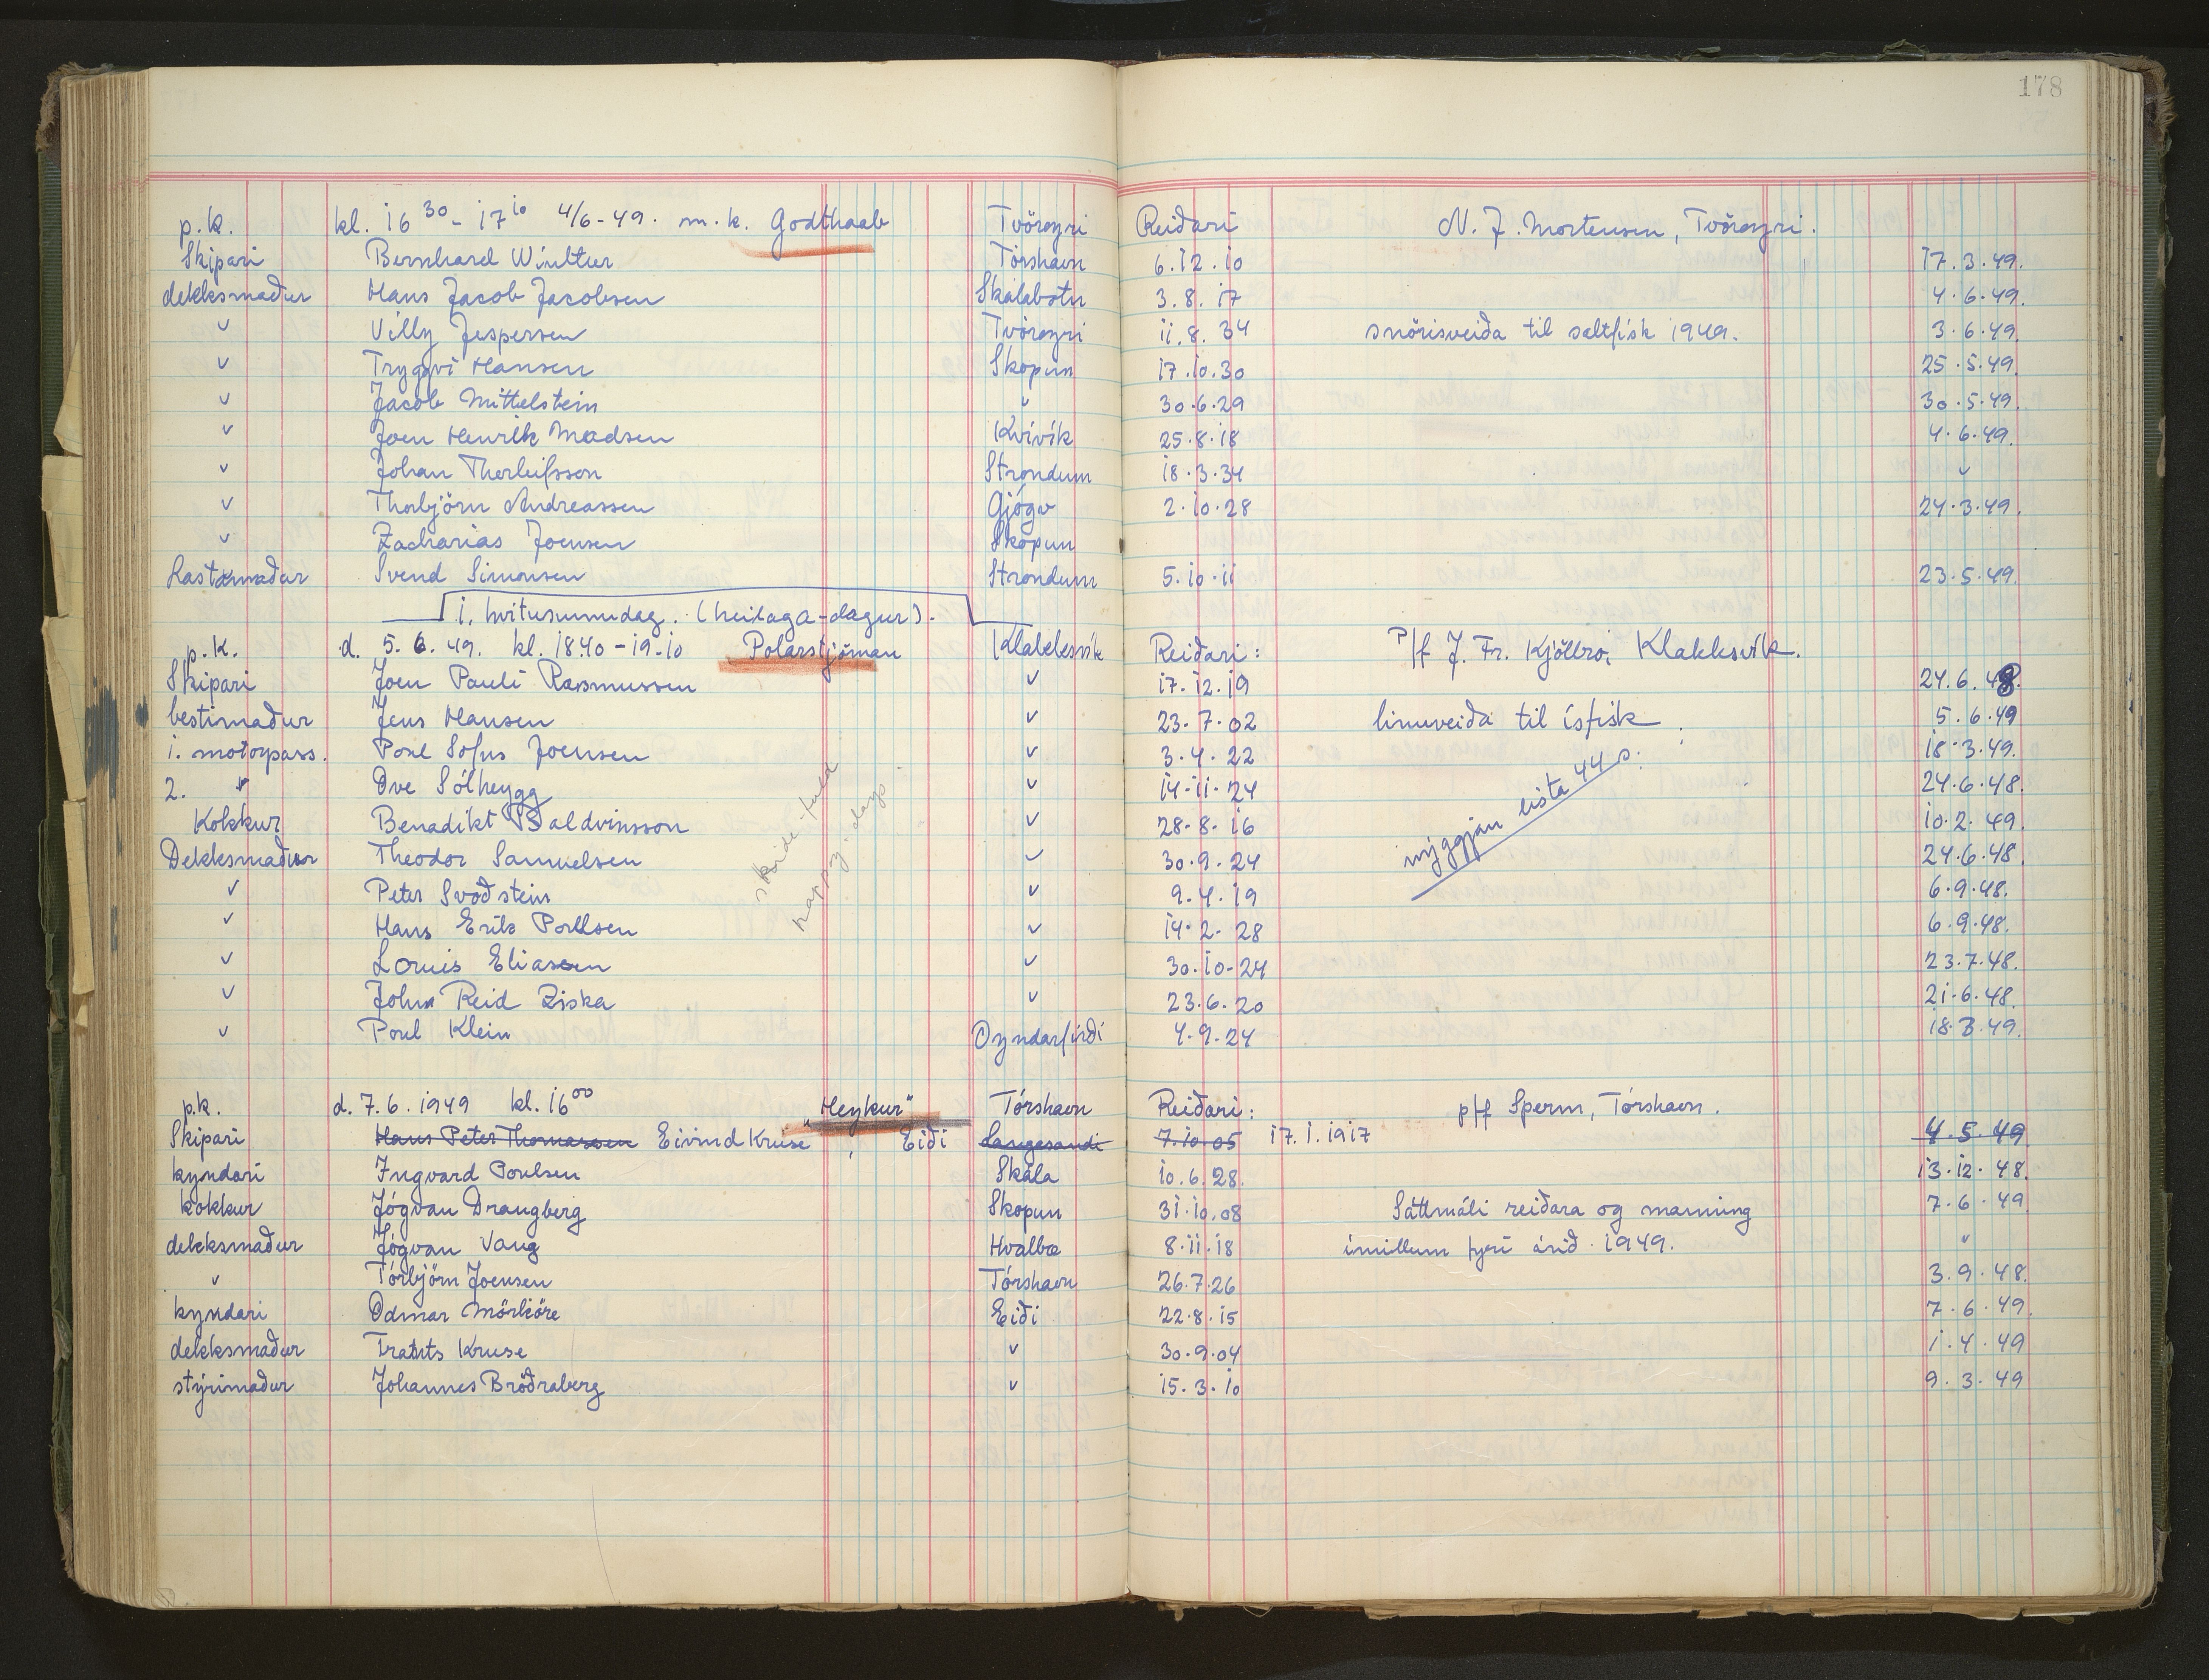 178
p.k. kl. 16 30 - 17 10 4/6-49. m.k. Godthaab Tvöroyri Reiðari N. J. Mortensen, Tvöroyri.
Skipari Bernhard Winther Tórshavn 6.12.10 17.3.49.
dekksmaður Hans Jacob Jacobsen Skálabotn 3.8.17 4.6.49.
" Villy Jespersen Tvöroyri 11.8.34 snörisveiða til saltfisk 1949. 3.6.49.
" Tryggvi Hansen Skopun 17.10.30 25.5.49.
" Jacob Mittelstein " 30.6.29 30.5.49.
" Joen Henrik Madsen Kvívík 25.8.18 4.6.49.
" Johan Thorleifsson Strondum 18.3.34 "
" Thorbjörn Andreassen Gjógv 2.10.28 24.3.49.
" Zacharias Joensen Skopun
Lastarmaður Svend Simonsen Strondum 5.10.11 23.5.49.
1. hvitusunnudag. (heilaga-dagur).
p.k. d. 5.6.49. kl. 18.40-19.10 Polarstjörnan Klakksvík Reiðari: P/f J. Fr. Kjölbro, Klakksvík.
Skipari Joen Pauli Rasmussen " 17.12.19 24.6.48.
bestimaður Jens Hansen " 23.7.02 linuveiða til ísfisk 5.6.49
1. motorpass. Poul Sofus Joensen " 3.4.22 18.3.49.
2. " Ove Sólheygg " 14-11-24 24.6.48.
Kokkur Benadikt Baldvinsson " 28-8-16 nýggjan lista 44 s: 10.2.49.
Dekksmaður Theodor Samuelsen " 30.9.24 24.6.48.
" Peter Svöðstein " 9.4.19 6.9.48.
" Hans Erik Poulsen " 14-2-28 6.9.48.
" Louis Eliasen " 30.10-24 23.7.48.
" John Reid Ziska " 23.6.20 21.6.48.
" Poul Klein Oyndarfirði 4.9.24 18.3.49.
happy days.
p.k. d. 7.6.1949 kl. 16 00 "Heykur" Tórshavn Reiðari: p/f Sperm, Tórshavn.
Skipari Hans Peter Thomassen Eivind Kruse, Eiði Langasandi 7.10.05 17.1.1917 4.5.49
kyndari Ingvard Poulsen Skála 10.6.28. 13.12.48.
kokkur Jógvan Drangberg Skopun 31.10.08 Sáttmáli reiðara og manning 7.6.49
dekksmaður Jógvan Vang Hvalbø 8.11.18 ímillum fyri árið 1949. "
" Tórbjörn Joensen Tórshavn 26.7.26 3.9.48.
kyndari Odmar Mörköre Eiði 22.8.15 7.6.49.
dekksmaður Tratuts Kruse " 30.9.04 1.4.49
stýrimaður Johannes Bröðraberg " 15.3.10 9.3.49